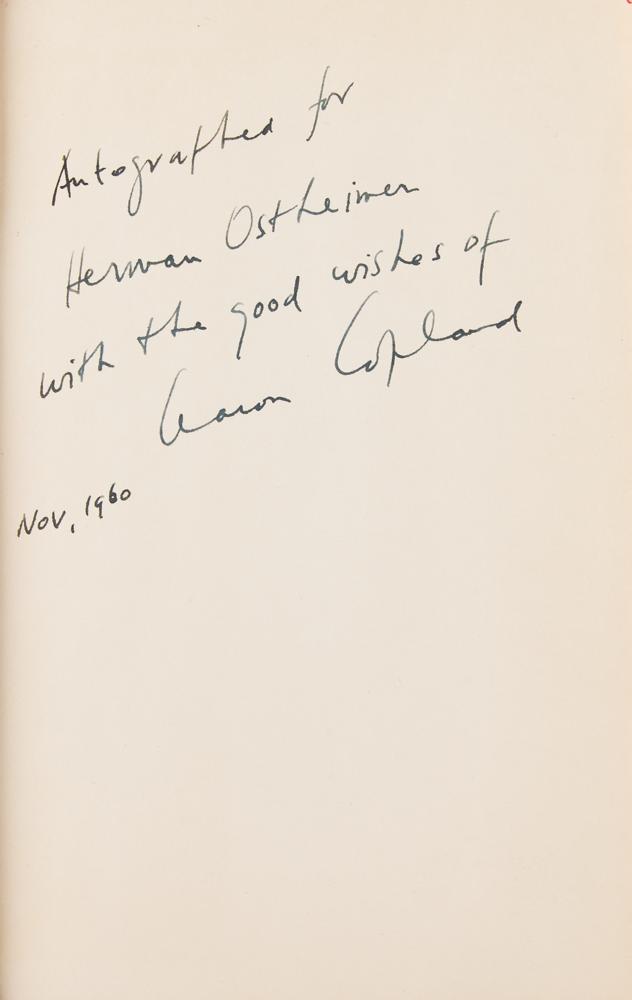 Autographed for
Herman Ostheimer
with the good wishes of
Aaron Copland
Nov, 1960